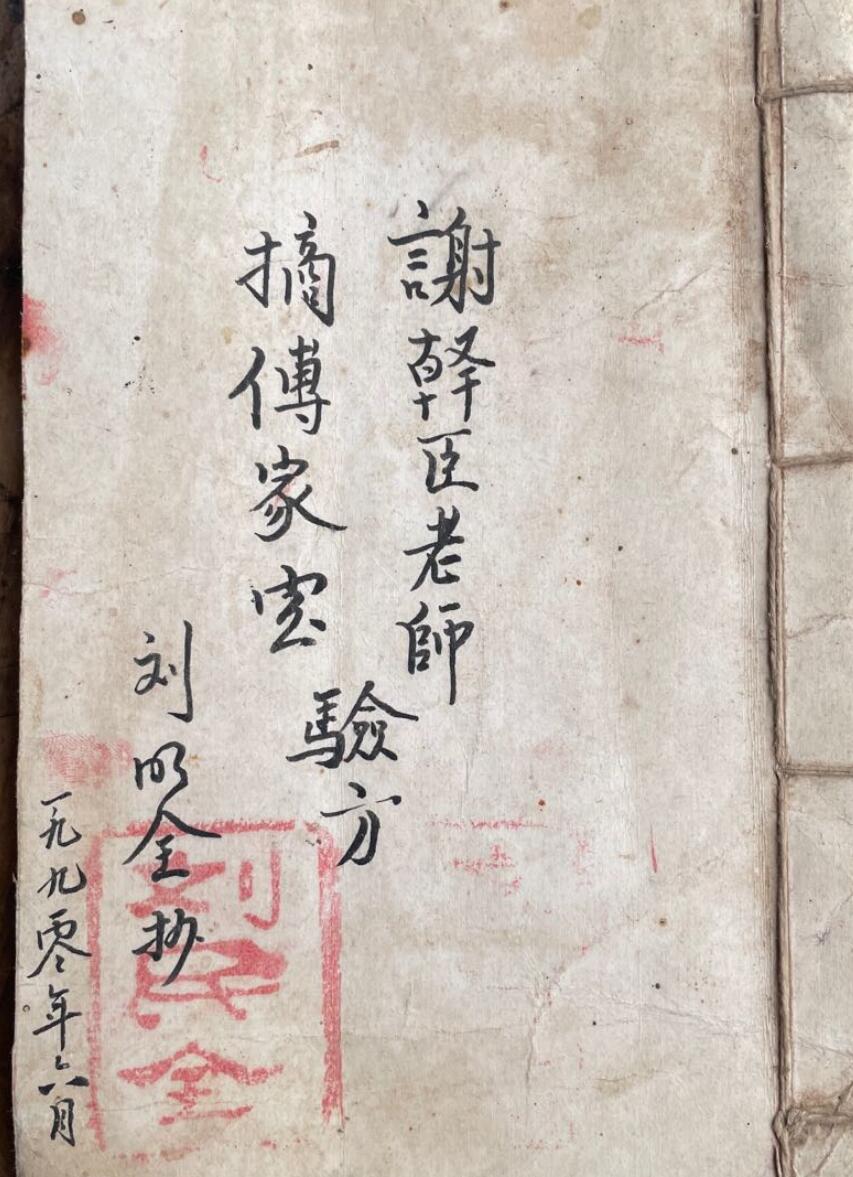 謝幹臣老師
驗方
摘傳家宝
刘明全抄
一九九零年六月
刘民全